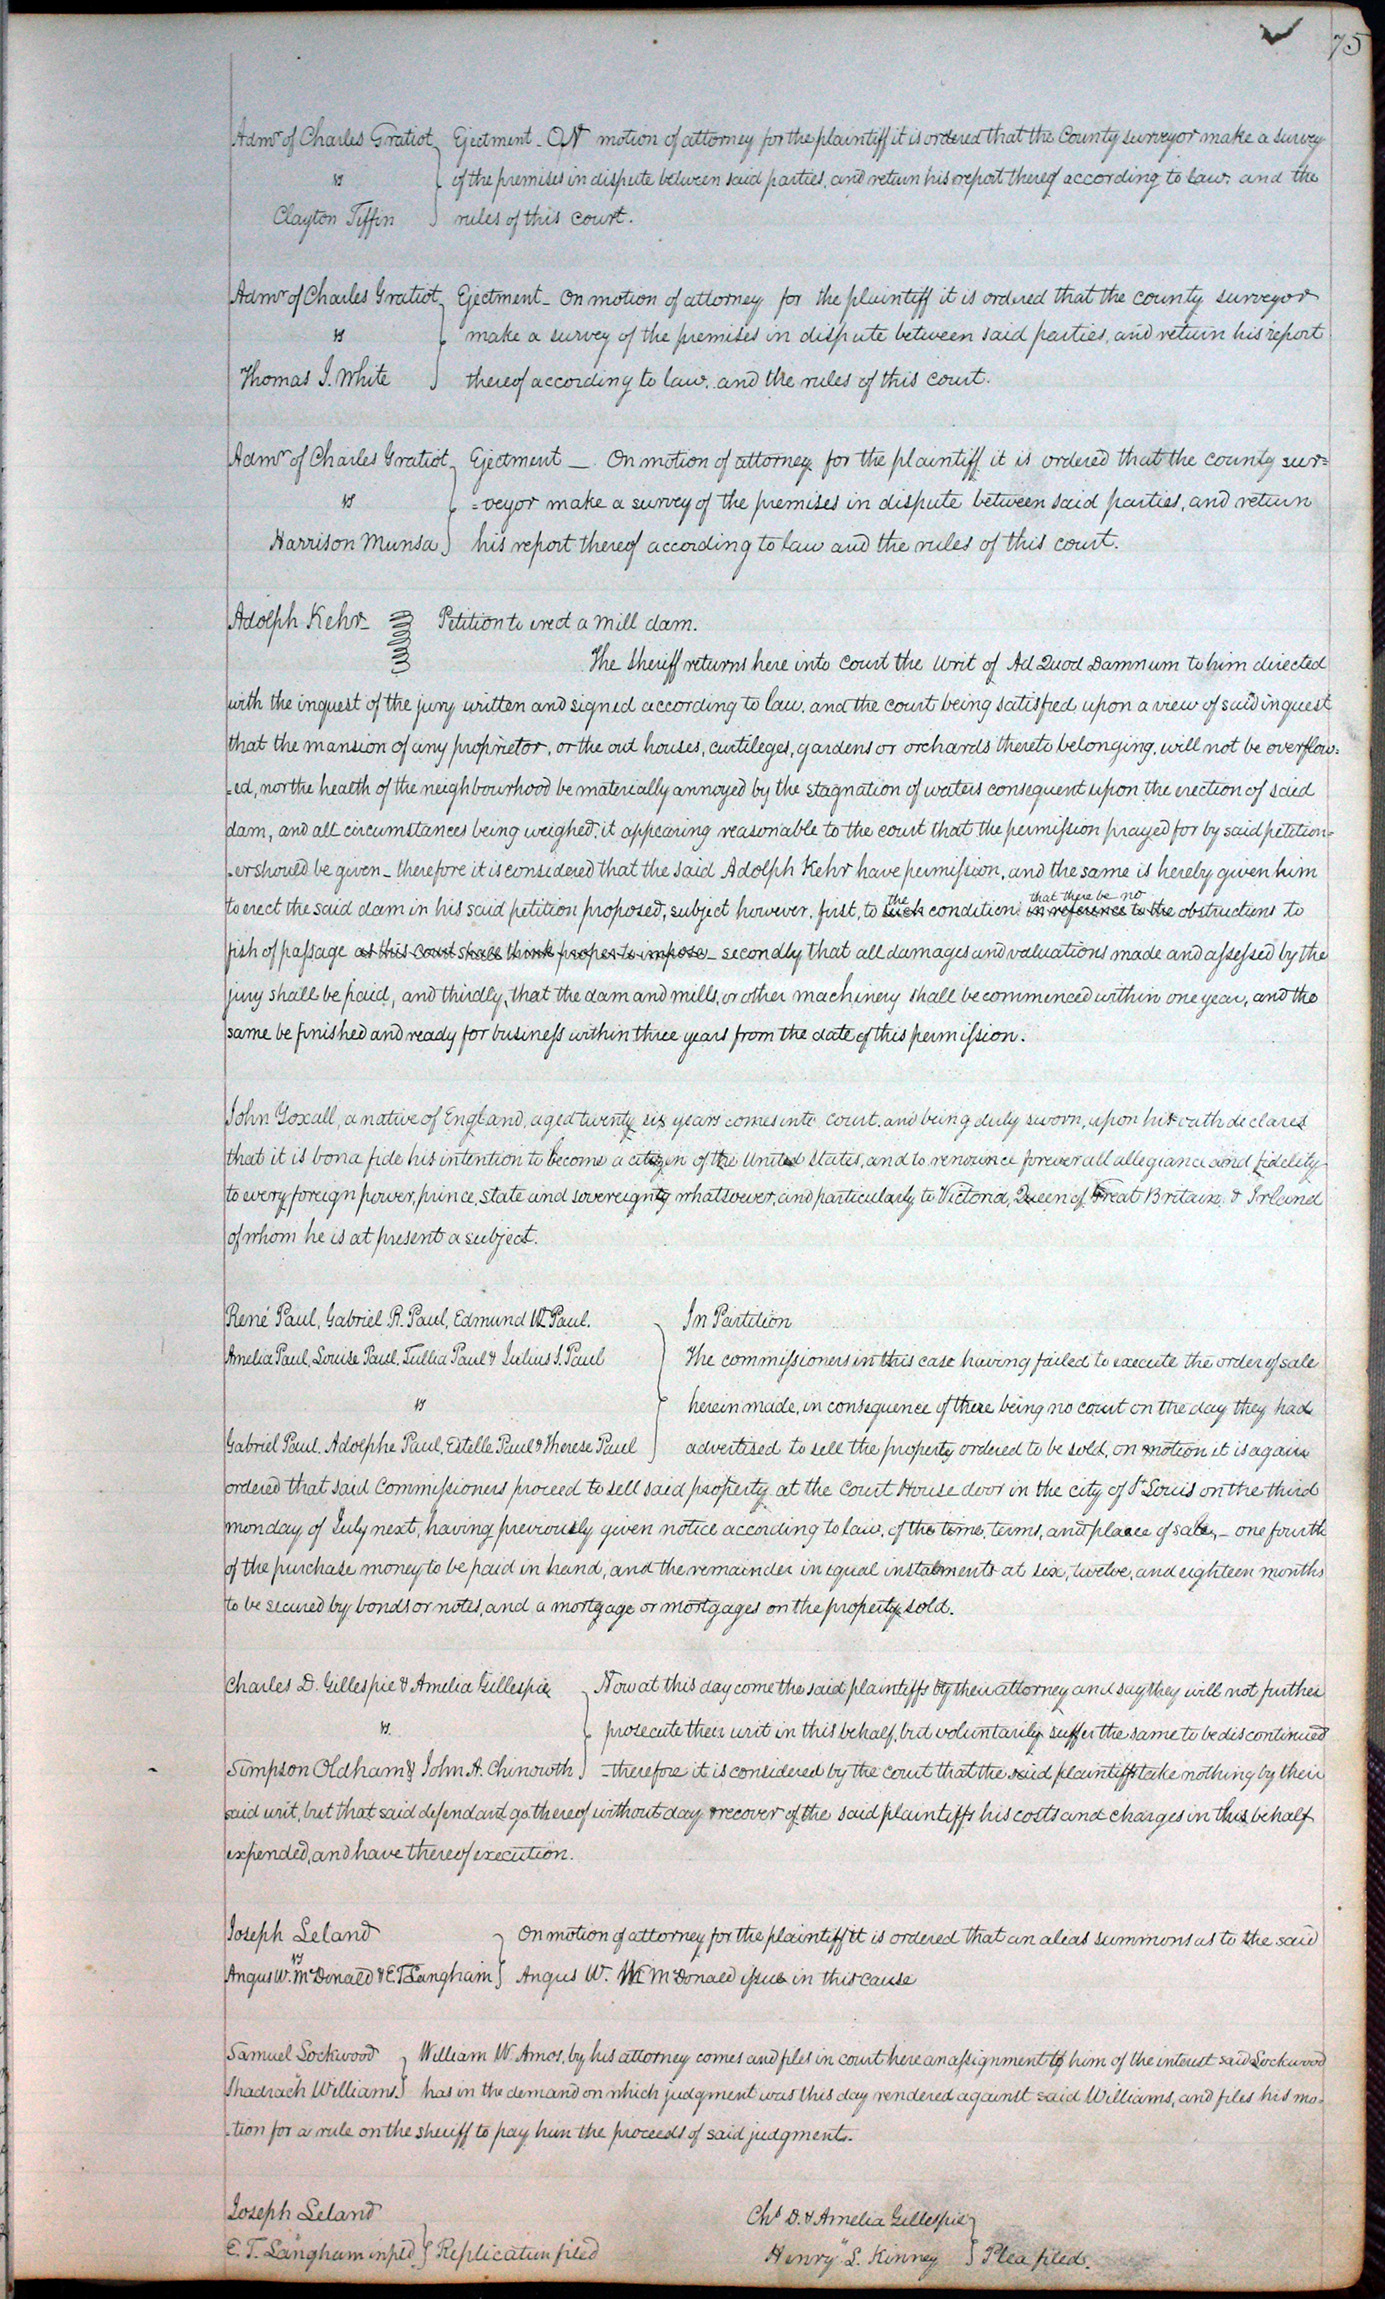 75
Admr of Charles Gratiot Ejectment - On motion of attorney for the plaintiff it is ordered that the County surveyor make a survey
vs of the premises in dispute between said parties, and return his report thereof according to law, and the
Clayton Tiffin rules of this court.
Admr of Charles Gratiot Ejectment - On motion of attorney for the plaintiff it is ordered that the county surveyor
vs make a survey of the premises in dispute between said parties, and return his report
Thomas J. White thereof according to law, and the rules of this court.
Admr of Charles Gratiot Ejectment - On motion of attorney for the plaintiff it is ordered that the county sur=
vs =veyor make a survey of the premises in dispute between said parties, and return
Harrison Munsa his report thereof according to law and the rules of this court.
Adolph Kehr Petition to erect a mill dam.
The sheriff returns here into court the writ of Ad Quod Damnum to him directed
with the inquest of the jury written and signed according to law, and the court being satisfied upon a view of said inquest
that the mansion of any proprietor, or the out houses, curtileges, gardens or orchards thereto belonging, will not be overflow=
=ed, nor the health of the neighbourhood be materially annoyed by the stagnation of waters consequent upon the erection of said
dam, and all circumstances being weighed, it appearing reasonable to the court that the permission prayed for by said petition=
=er should be given - therefore it is considered that the said Adolph Kehr have permission, and the same is hereby given him
the that there be no
to erect the said dam in his said petition proposed, subject however, first, to such condition in reference to the obstructions to
fish of passage as this court shall think proper to impose - secondly that all damages and valuations made and assessed by the
jury shall be paid, and thirdly, that the dam and mills, or other machinery shall be commenced within one year, and the
same be finished and ready for business within three years from the date of this permission.
John Yoxall, a native of England, aged twenty six years comes into court, and being duly sworn, upon his oath declares
that it is bona fide his intention to become a citizen of the United States, and to renounce forever all allegiance and fidelity
to every foreign power, prince, state and sovereignty whatsoever, and particularly to Victoria, Queen of Great Britain & Irland
of whom he is at present a subject.
René Paul, Gabriel R. Paul, Edmund W Paul. In Partition
Amelia Paul, Louise Paul, Tullia Paul & Julius J. Paul The commissioners in this case having failed to execute the order of sale
vs herein made, in consequence of there being no court on the day they had
Gabriel Paul, Adolphe Paul, Estelle Paul & Therese Paul advertised to sell the property ordered to be sold, on motion it is again
ordered that said Commissioners proceed to sell said property at the Court House door in the city of St Louis on the third
monday of July next, having previously given notice according to law, of the time, terms, and place of sale, - one fourth
of the purchase money to be paid in hand, and the remainder in equal instalments at six, twelve, and eighteen months
to be secured by bonds or notes, and a mortgage or mortgages on the property sold.
Charles D. Gillespie & Amelia Gillespie Now at this day come the said plaintiffs by their attorney and say they will not further
vs. prosecute their writ in this behalf, but voluntarily suffer the same to be discontinued
Simpson Oldham & John A. Chinowth - therefore it is considered by the court that the said plaintiffs take nothing by their
said writ, but that said defendant go thereof without day & recover of the said plaintiffs his costs and charges in this behalf
expended, and have thereof execution.
Joseph Leland On motion of attorney for the plaintiff it is ordered that an alias summons as to the said
vs
Angus W. McDonald & E. T. Langham Angus W. McDonald issue in this cause
Samuel Lockwood William W. Amos, by his attorney comes and files in court here an assignment to him of the interest said Lockwood
Shadrach Williams has in the demand on which judgment was this day rendered against said Williams, and files his mo=
=tion for a rule on the sheriff to pay him the proceeds of said judgment.
Joseph Leland Chs D. & Amelia Gillespie
E. T. Langham impld Replication filed Henry L. Kinney Plea filed.